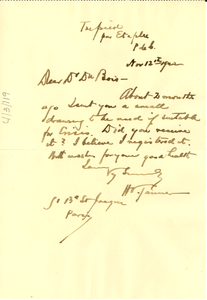 Trepied
par Etaples
P. de C.
Nov 12th
Dear Dr. Du Bois—
About 2 months
ago I sent you a small
drawing to be used if suitable
for Crisis. Did you receive
it? I believe I registered it.
With wishes for your good health
I am
Very Sincerely
H O Tanner
50 Bd St Jacques
Paris